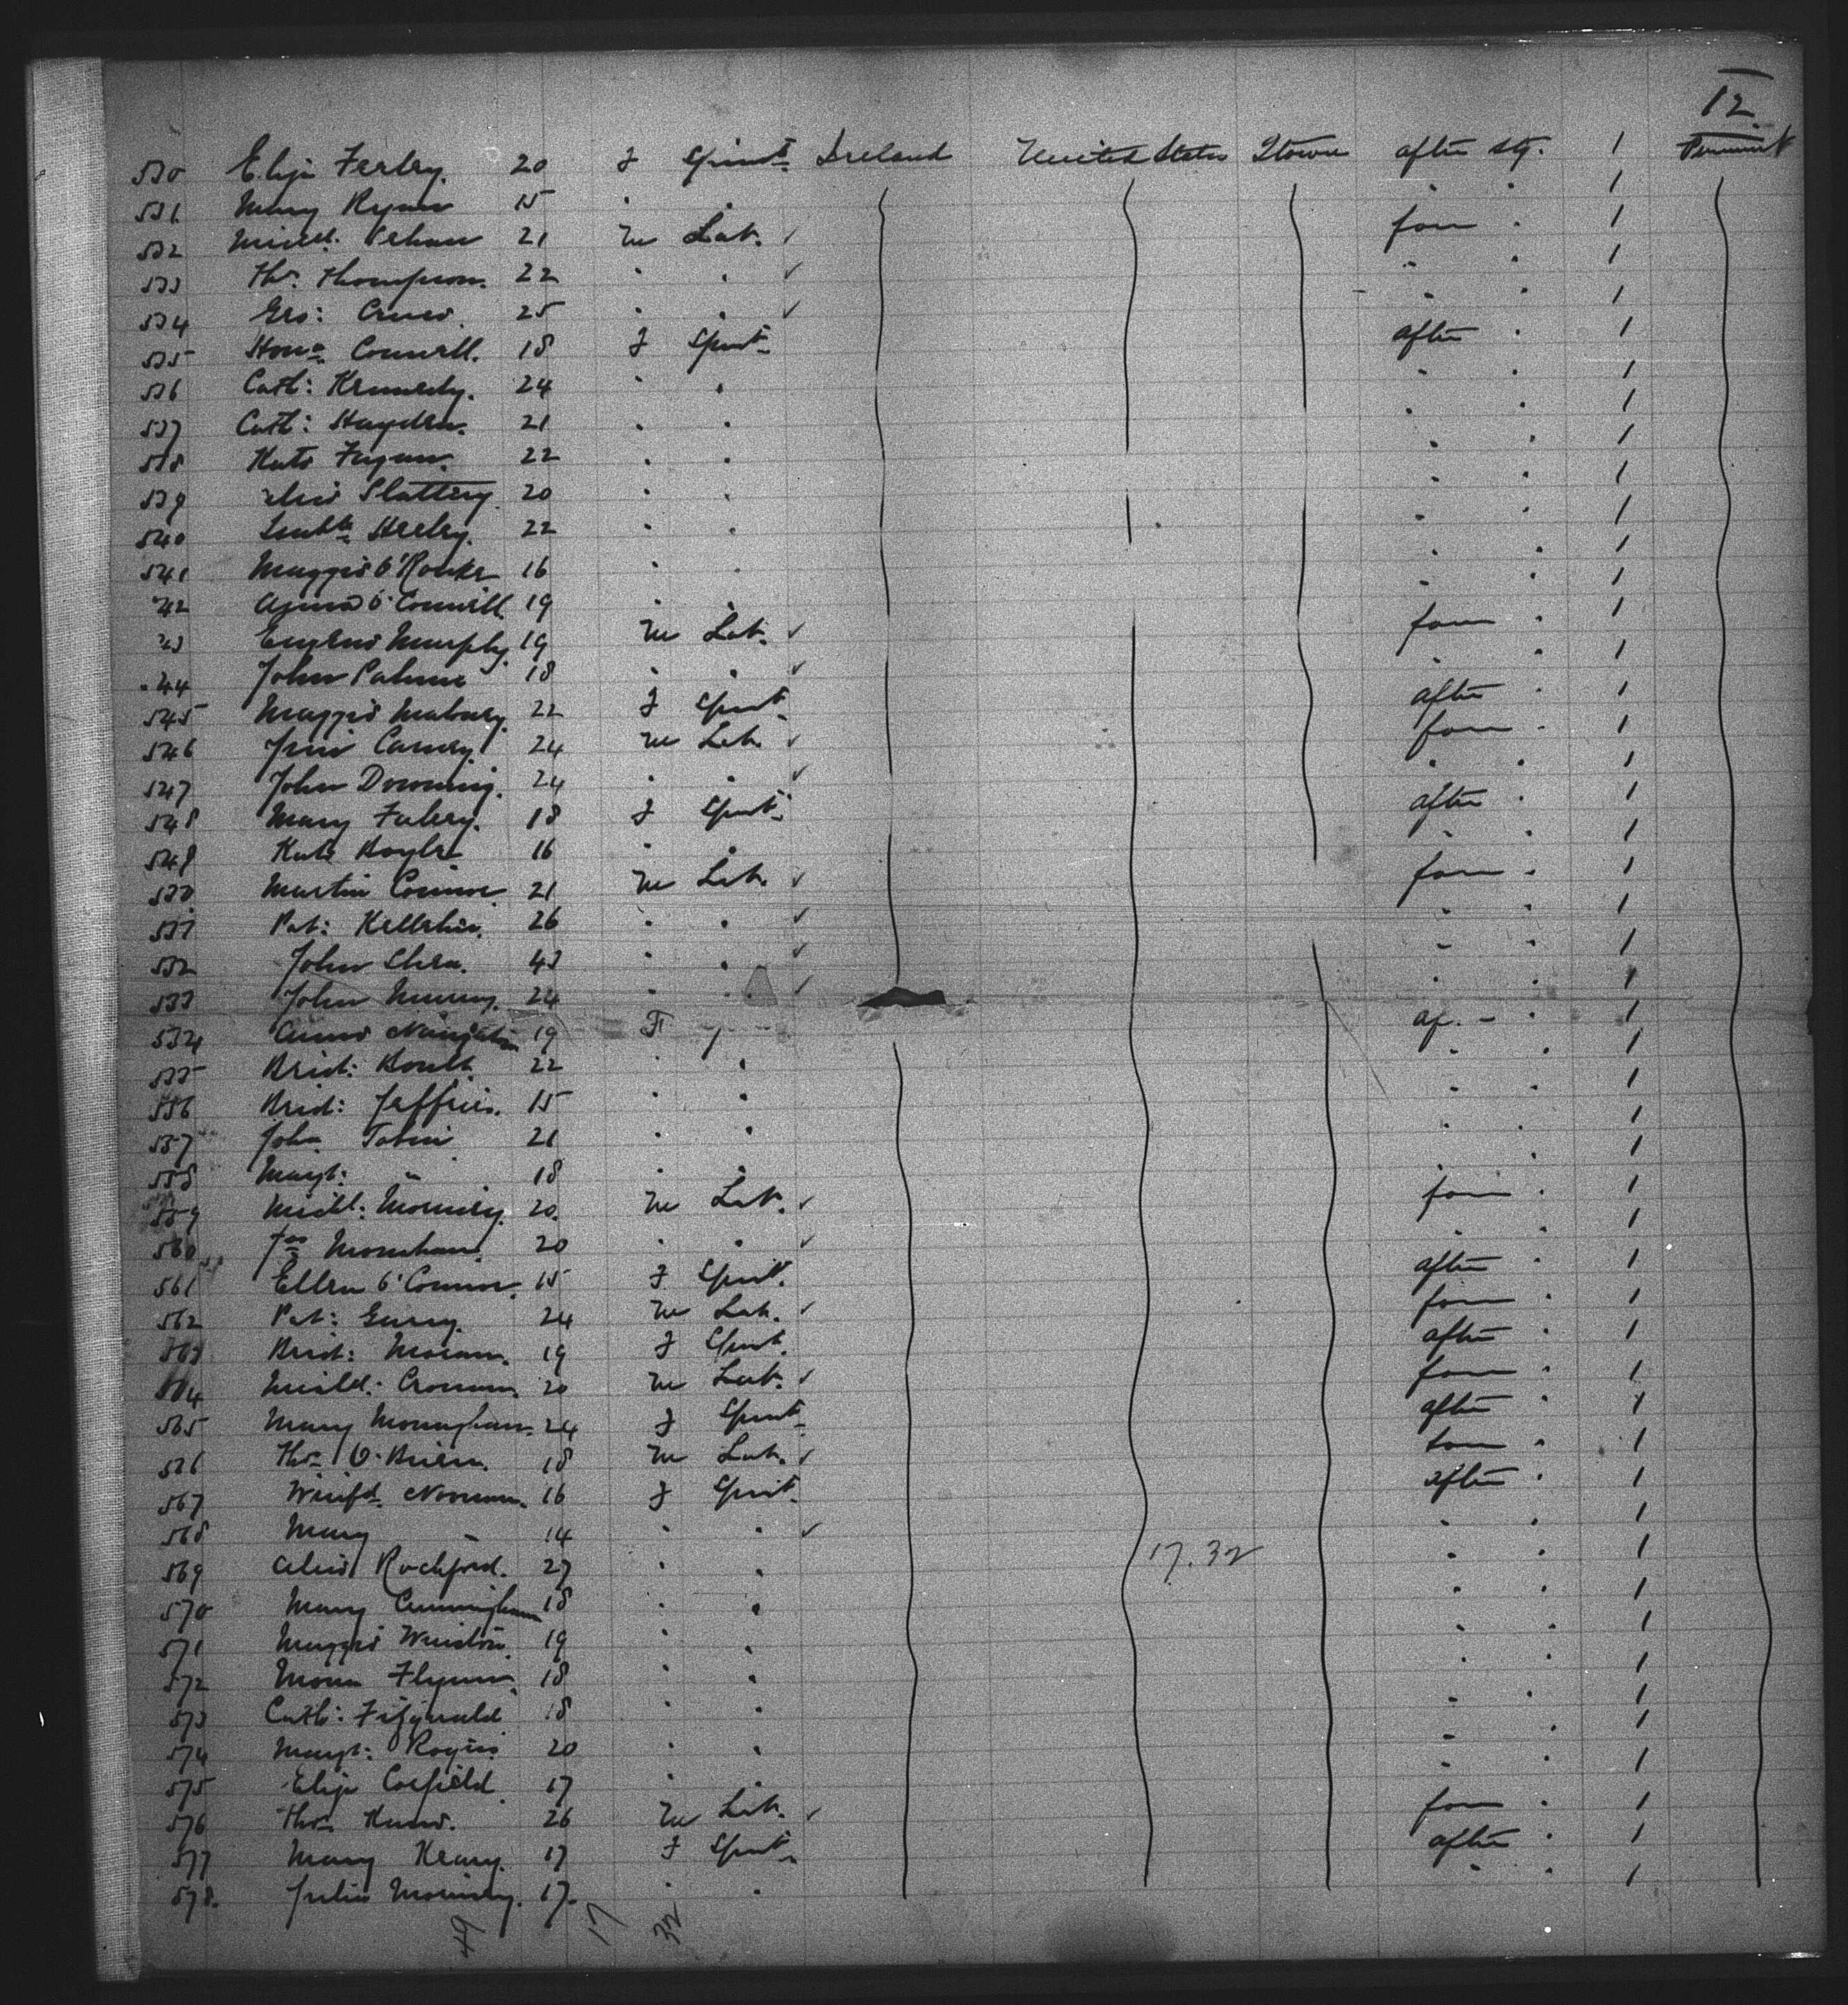 12
530 Eliza Ferley. 20 F Spinst. Ireland United States Qtown after stg. 1 Permanent
531 Mary Ryan 15 " " " " 1
532 Michl. 21 M Lab. ✓ fore " 1
533 Thos. Thompson. 22 " " ✓ " " 1
534 Geo: 25 " " ✓ " " 1
535 Hona. Connell. 18 F Spinst. after " 1
536 Cath: Kennedy. 24 " " " " 1
537 Cath: Hayden. 21 " " " " 1
538 Kate Fagan. 22 " " " " 1
539 Slattery 20 " " " " 1
540 Heeley. 22 " " " " 1
541 Maggie O'Rourke 16 " " " " 1
42 O'Connell. 19 " " " " 1
43 Eugene Murphy. 19 M Lab. ✓ fore " 1
44 John Palmer 18 " " ✓ " " 1
545 Maggie 22 F Spinst. after " 1
546 24 M Lab. ✓ fore " 1
547 John Downing. 24 " " ✓ " " 1
548 Mary 18 F Spinst. after " 1
549 Kate Boyle 16 " " " " 1
550 Martin Connor. 21 M Lab. ✓ fore " 1
551 Pat: Kelleher. 26 " " ✓ " " 1
552 John Shea. 43 " " ✓ " " 1
553 John Murray. 24 " " ✓ " " 1
554 Annie 19 F " af. - " 1
555 Brid: 22 " " " " 1
556 Brid: Jeffries. 15 " " " " 1
557 Joha Tobin 21 " " " " 1
558 Magt: " 18 " " " " 1
559 Michl: 20. M Lab. ✓ fore " 1
560 Jas Monahan. 20 " " ✓ " " 1
561 Ellen O'Connor. 15 F Spinst. after " 1
562 Pat: 24 M Lab. ✓ fore " 1
563 Brid: Moran. 19 F Spinst. after " 1
564 Michl: Cronan. 20 M Lab. ✓ fore " 1
565 Mary Monaghan. 24 F Spinst. after " 1
566 Thos. O'Brien. 18 M Lab. ✓ fore " 1
567 Winifd. Noonan. 16 F Spinst. after " 1
568 Mary " 14 " " ✓ " " 1
569 Rochford. 27 " " 17.32 " " 1
570 Mary Cunningham 18 " " " " 1
571 Maggie Winston. 19 " " " " 1
572 Flynn. 18 " " " " 1
573 Cath: Fitzgerald. 18 " " " " 1
574 Magt: Rogers 20 " " " " 1
575 Eliza Corfield. 17 " " " " 1
576 Thos. 26 M Lab. ✓ fore " 1
577 Mary Keary. 17 F Spinst. after " 1
578. Julia 17. " " " " 1
49 17 32